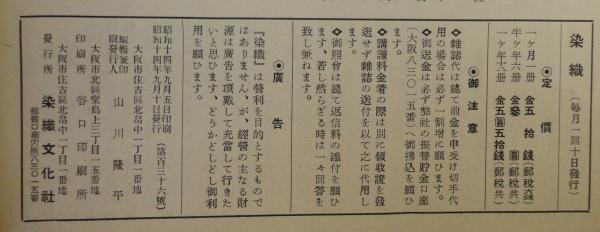 染織 (毎月一回十日發行)
◉定價
一ヶ月一册 金五拾錢(郵税共)
半ヶ年六册 金參圓(郵税共)
一ヶ年十二册 金五圓五拾錢(郵税共)
◉御注意
◇雜誌代は總て前金を申受け切手代
用の場合は必ず一割增に願ひます。
◇御送金は必ず弊社の振替貯金口座
(大阪八三〇一五番)へ御拂込を願ひ
ます。
◇講讀料金着の際は別に領收證を發
送せず雜誌の送付を以て之に代用し
◇御照會は總て返信料の添付を願ひ
ます、若し然らざる時は一々回答を
致し兼ねます。
◉廣告
『染織』は營利を目的とするもので
はありません、が、經營の主なる財
源は廣告を頂戴して充當して行きた
いと思ひます、どうかどしどし御利
用を願ひます。
昭和十四年九月五日印刷
昭和十四年九月十日發行 (第百三十六號)
大阪市住吉區北畠中一丁目一番地
編輯兼印刷發行人 山川隆平
大阪市北區堂島上三丁目一五番地
印刷所 谷口印刷所
大阪市住吉區北畠中一丁目一番地
發行所 染織文化社
振替口座大阪八三〇一五番